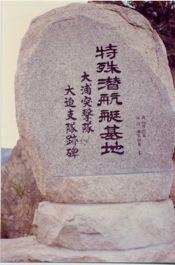 特殊潜航艇基地
大浦突撃隊
大迫支隊跡碑